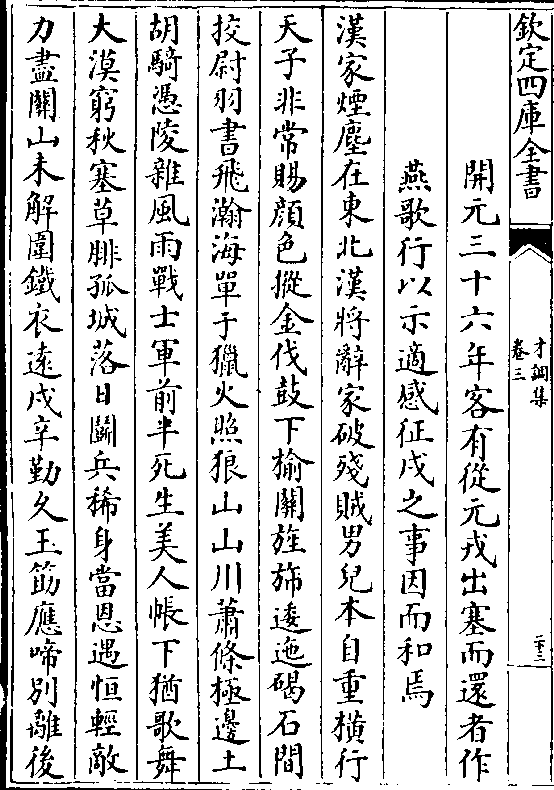 欽定四庫全書
才調集
卷三
二十三
開元三十六年客有從元戎出塞而還者作
燕歌行以示適感征戍之事因而和焉
漢家煙塵在東北漢將辭家破殘賊男兒本自重橫行
天子非常賜顔色摐金伐鼓下榆關旌斾逶迤碣石間
挍尉羽書飛瀚海單于獵火照狼山山川蕭條極邊土
胡騎憑陵雜風雨戰士軍前半死生美人帳下猶歌舞
大漠窮秋塞草腓孤城落日鬬兵稀身當恩遇恒輕敵
力盡關山未解圍鐵衣逺戍辛勤久玉筯應啼别離後